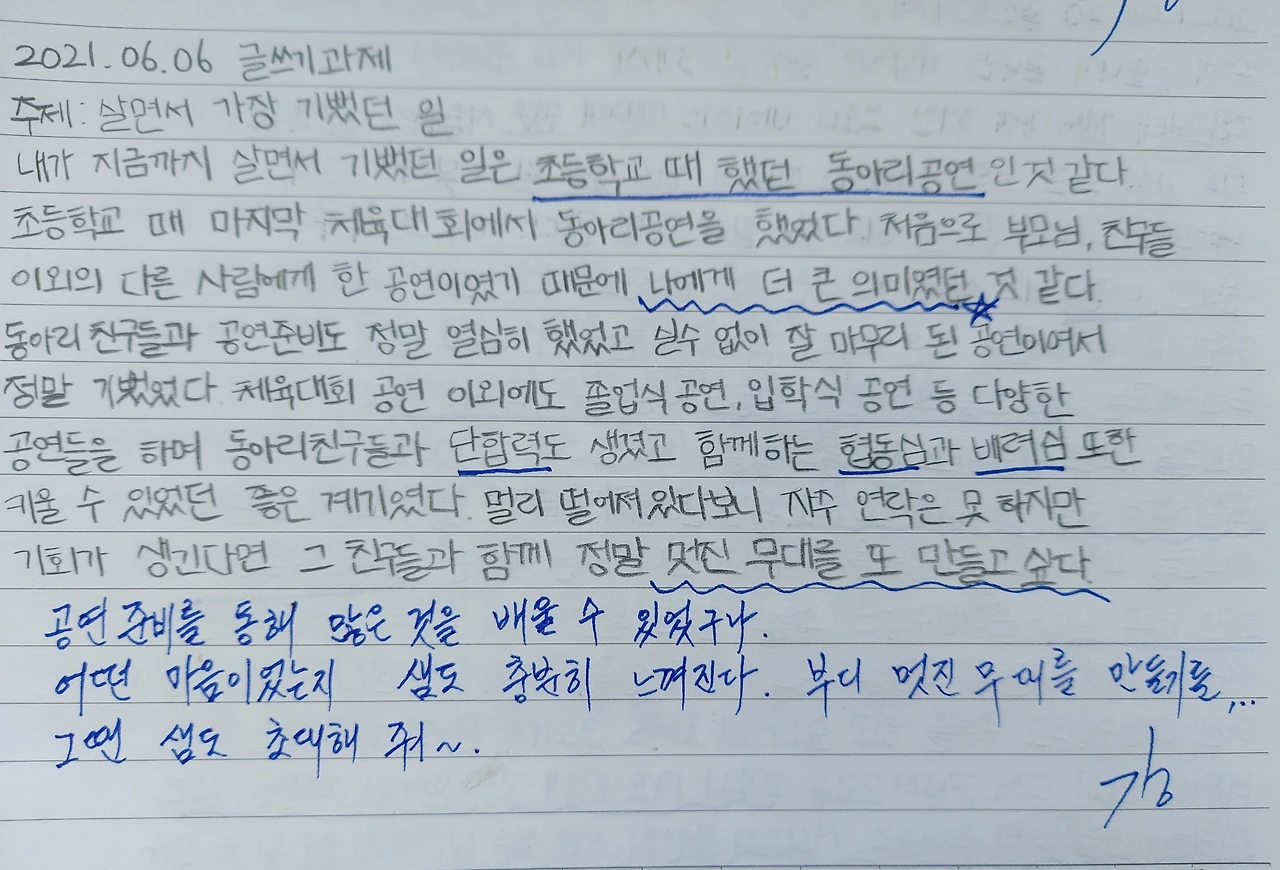 2021.06.06 글쓰기과제
주제: 살면서 가장 기뻤던 일
내가 지금까지 살면서 기뻤던 일은 초등학교 때 했던 동아리공연 인것 같다.
초등학교 때 마지막 체육대회에서 동아리공연을 했었다. 처음으로 부모님, 친구들
이외의 다른 사람에게 한 공연이였기 때문에 나에게 더 큰 의미였던 것 같다.
동아리 친구들과 공연준비도 정말 열심히 했었고 실수 없이 잘 마무리 된 공연이여서
정말 기뻤었다. 체육대회 공연 이외에도 졸업식 공연, 입학식 공연 등 다양한
공연들을 하며 동아리친구들과 단합력도 생겼고 함께하는 협동심과 배려심 또한
키울 수 있었던 좋은 계기였다. 멀리 떨어져있다보니 자주 연락은 못 하지만
기회가 생긴다면 그 친구들과 함께 정말 멋진 무대를 또 만들고 싶다.
공연 준비를 통해 많은 것을 배울 수 있었구나.
어떤 마음이었는지 샘도 충분히 느껴진다. 부디 멋진 무대를 만들기를...
그땐 샘도 초대해 줘~.